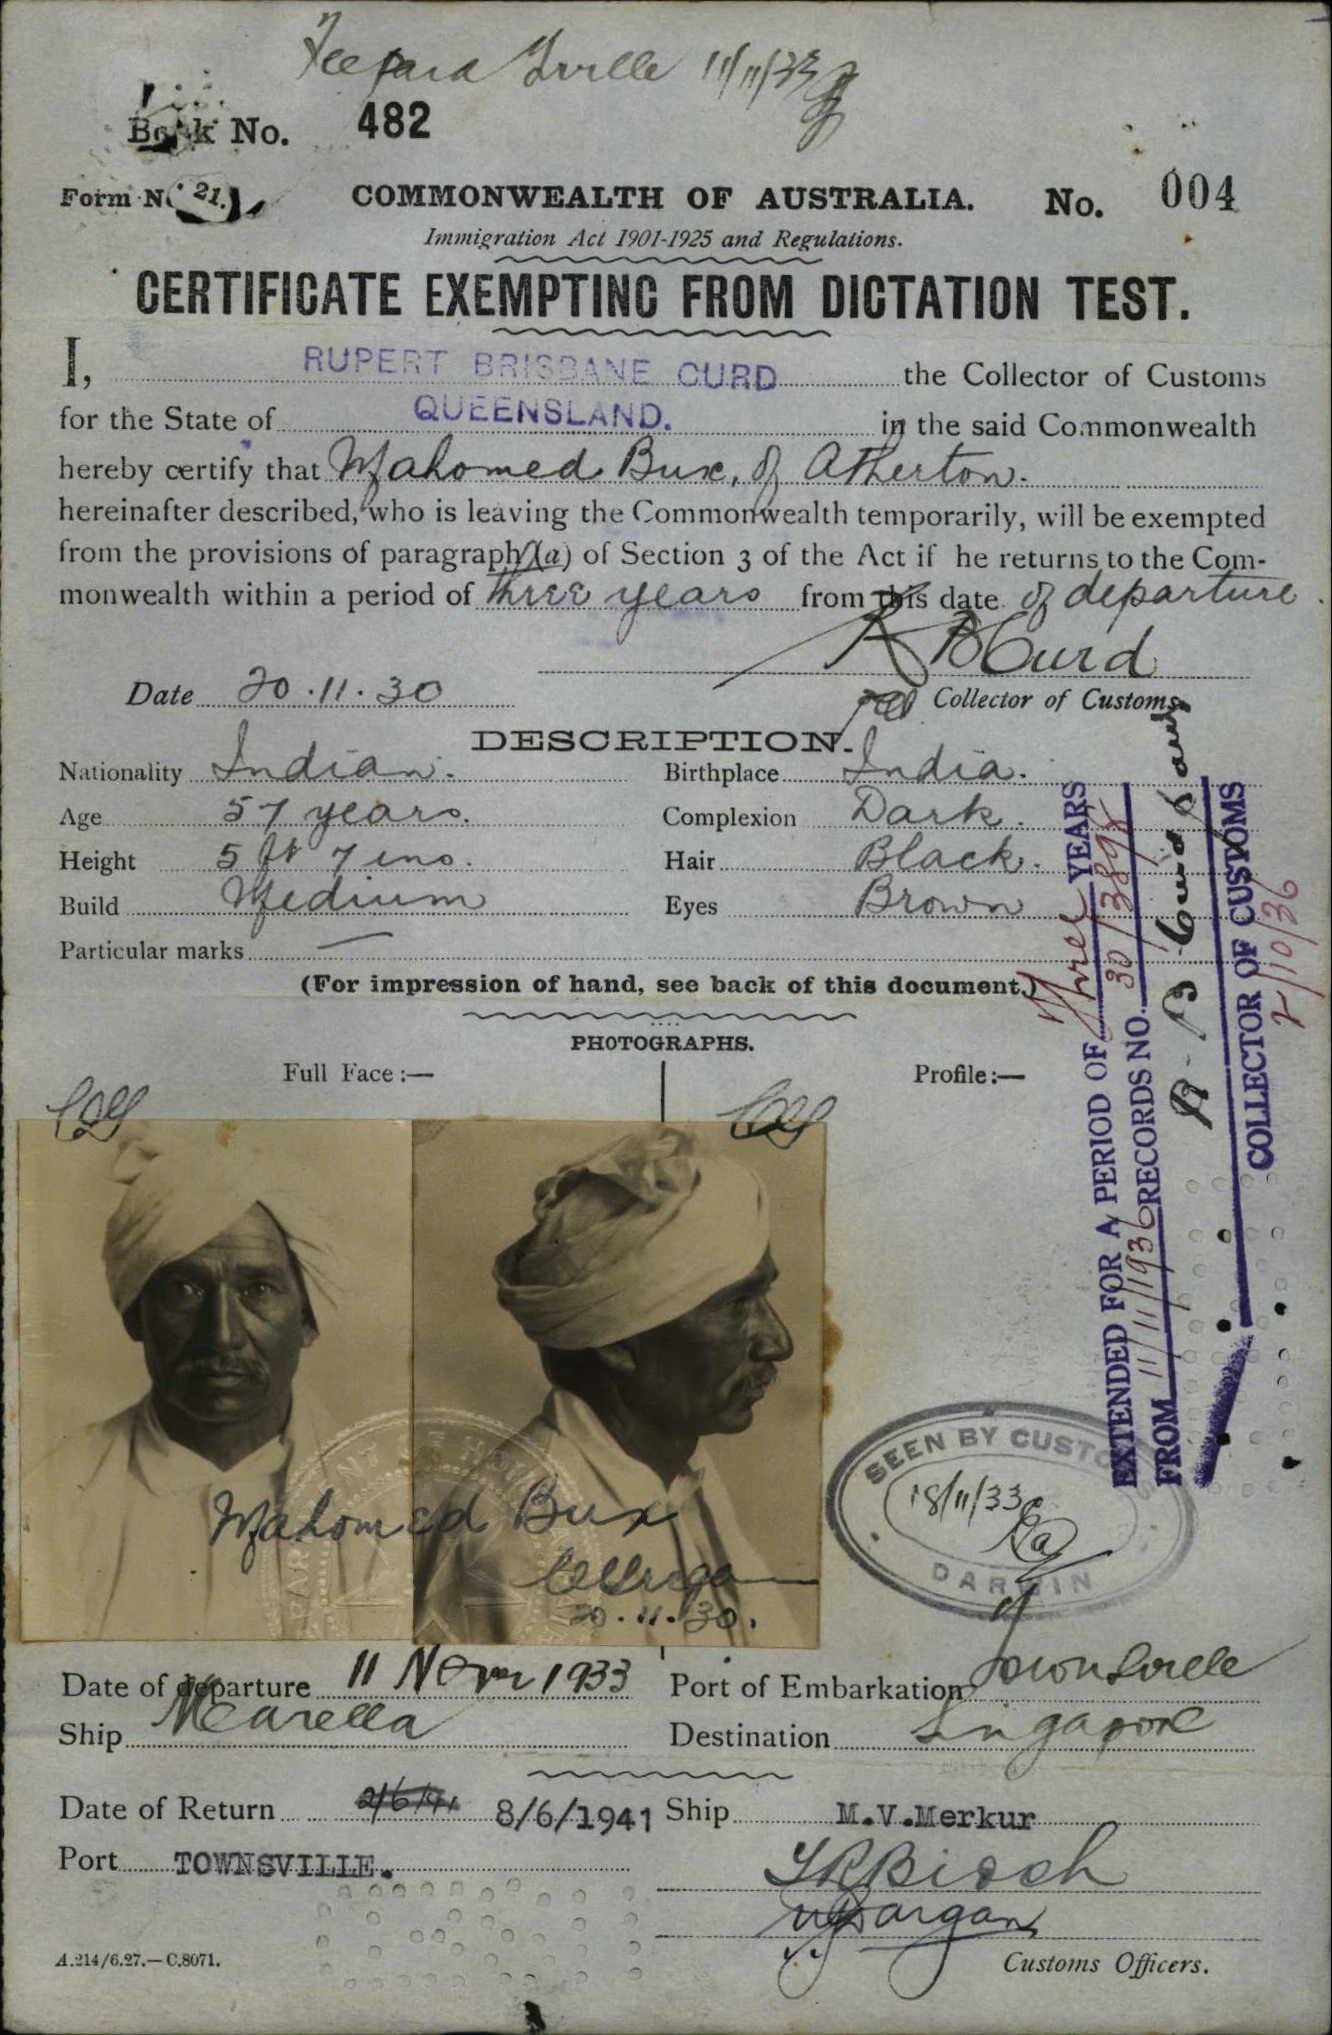 Fee paid T'ville 11/11/33
Book No. 482
Form No. 21.
COMMONWEALTH OF AUSTRALIA. No. 004
Immigration Act 1901-1925 and Regulations.
CERTIFICATE EXEMPTING FROM DICTATION TEST.
I, RUPERT BRISBANE CURD the Collector of Customs
for the State of QUEENSLAND. in the said Commonwealth
hereby certify that Mahomed Bux, of Atherton.
hereinafter described, who is leaving the Commonwealth temporarily, will be exempted
from the provisions of paragraph (a) of Section 3 of the Act if he returns to the Com-
monwealth within a period of three years from this date of departure.
R B Curd
Date 20.11.30 Collector of Customs
DESCRIPTION.
Nationality Indian. Birthplace India.
Age 57 years. Complexion Dark.
Height 5 ft 7 ins. Hair Black.
Build Medium Eyes Brown
Particular marks —
(For impression of hand, see back of this document.)
PHOTOGRAPHS.
Full Face:— Profile:—
EXTENDED FOR A PERIOD OF Three YEARS
FROM 11/11/1936 RECORDS NO. 30/3895
R. B. Curd
COLLECTOR OF CUSTOMS
2/10/36
Mahomed Bux
20.11.30.
SEEN BY CUSTOMS
18/11/33
DARWIN
Date of departure 11 Novr 1933 Port of Embarkation Townsville
Ship Marella Destination Singapore
Date of Return 2/6/41 8/6/1941 Ship M.V.Merkur
Port TOWNSVILLE.
Customs Officers.
A.214/6.27.—C.8071.